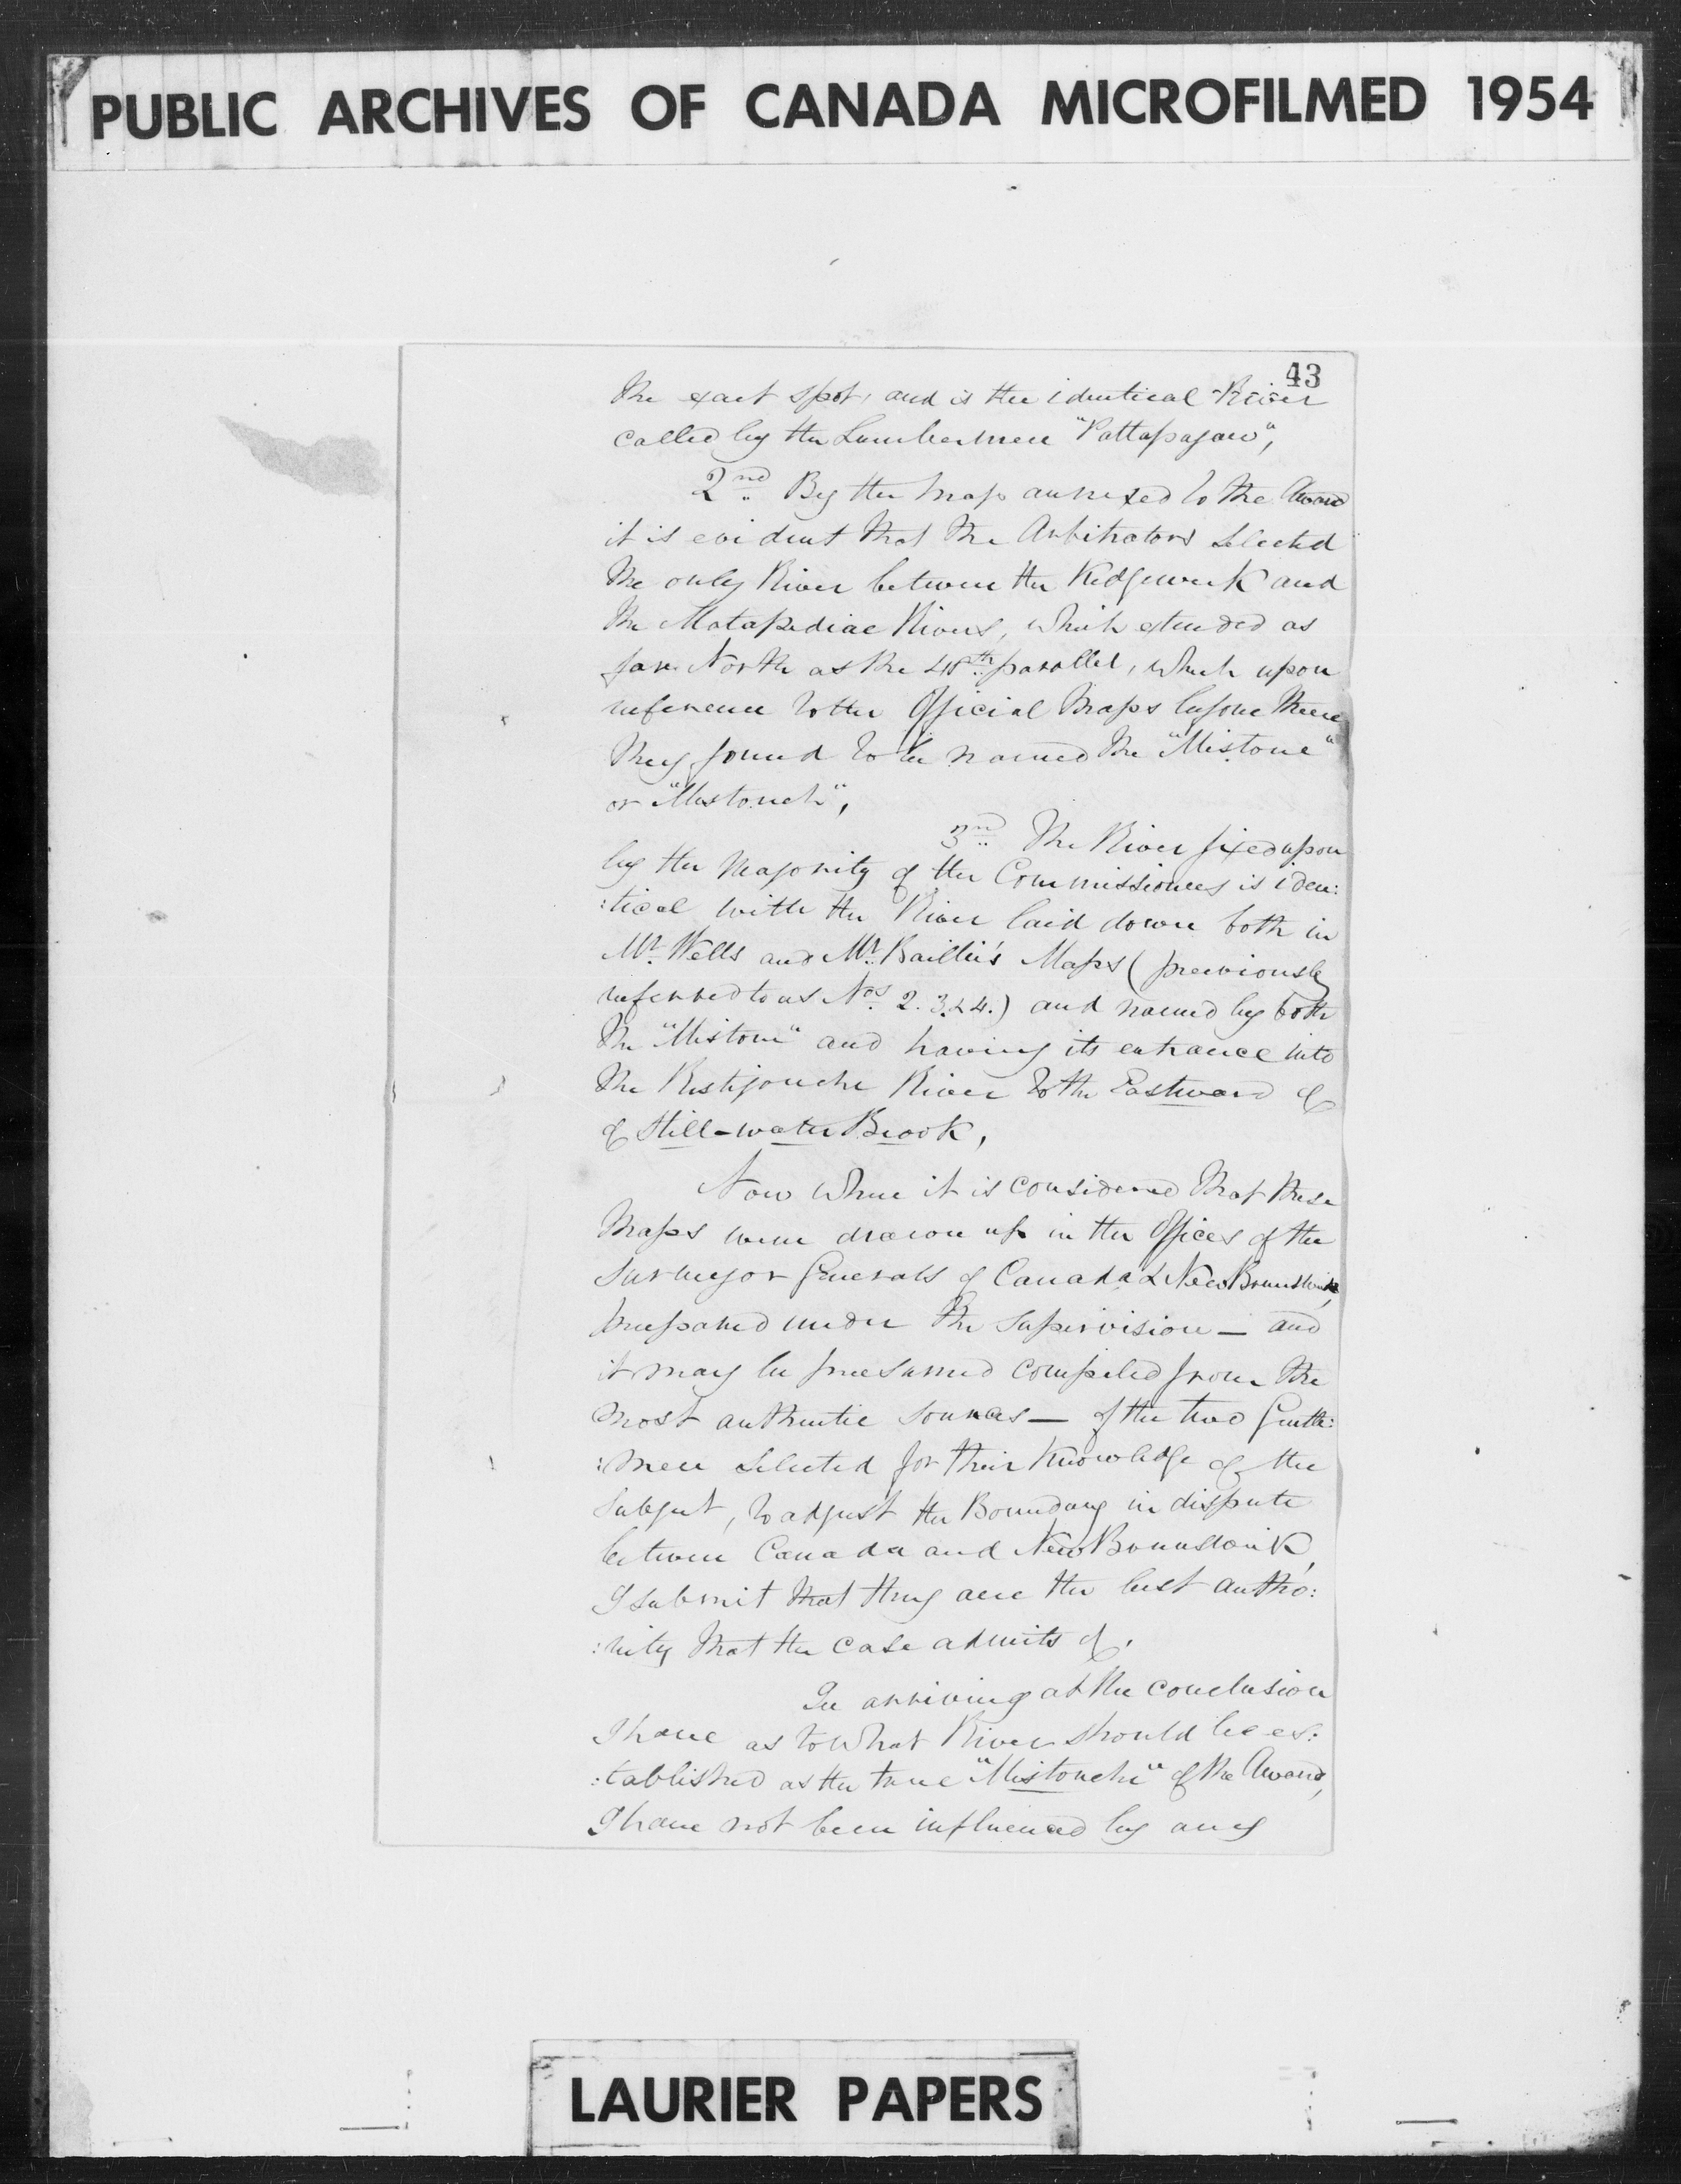 PUBLIC ARCHIVES OF CANADA MICROFILMED 1954
43
the exact spot, and is the identical River
called by the Lumbermen "Pattapajaw",
2nd By the Map annexed to the Award
it is evident that the Arbitrators selected
the only River between the Kedgewick and
the Matapediac Rivers, which extended as
far North as the 48th parallel, which upon
reference to the Official Maps before them
they found to be named the "Mistoue"
or "Mistouch",
3rd The River fixed upon
by the Majority of the Commissioners is iden:
:tical with the River laid down both in
Mr. Wells and Mr. Baillie's Maps (previously
referred to as Nos. 2. 3. & 4.) and named by both
the "Mistoue" and having its entrance into
the Ristigouche River to the Eastward of
of Still-water Brook,
Now when it is considered that these
Maps were drawn up in the Offices of the
Surveyor Generals of Canada & New Brunswick,
prepared under the supervision — and
it may be presumed compiled from the
most authentic sources — of the two Gentle:
:men selected for their Knowledge of the
subject, to adjust the Boundary in dispute
between Canada and New Brunswick,
I submit that they are the best autho:
:rity that the case admits of.
In arriving at the conclusion
I have as to what River should be es:
:tablished as the true "Mistouche" of the Award,
I have not been influenced by any
LAURIER PAPERS